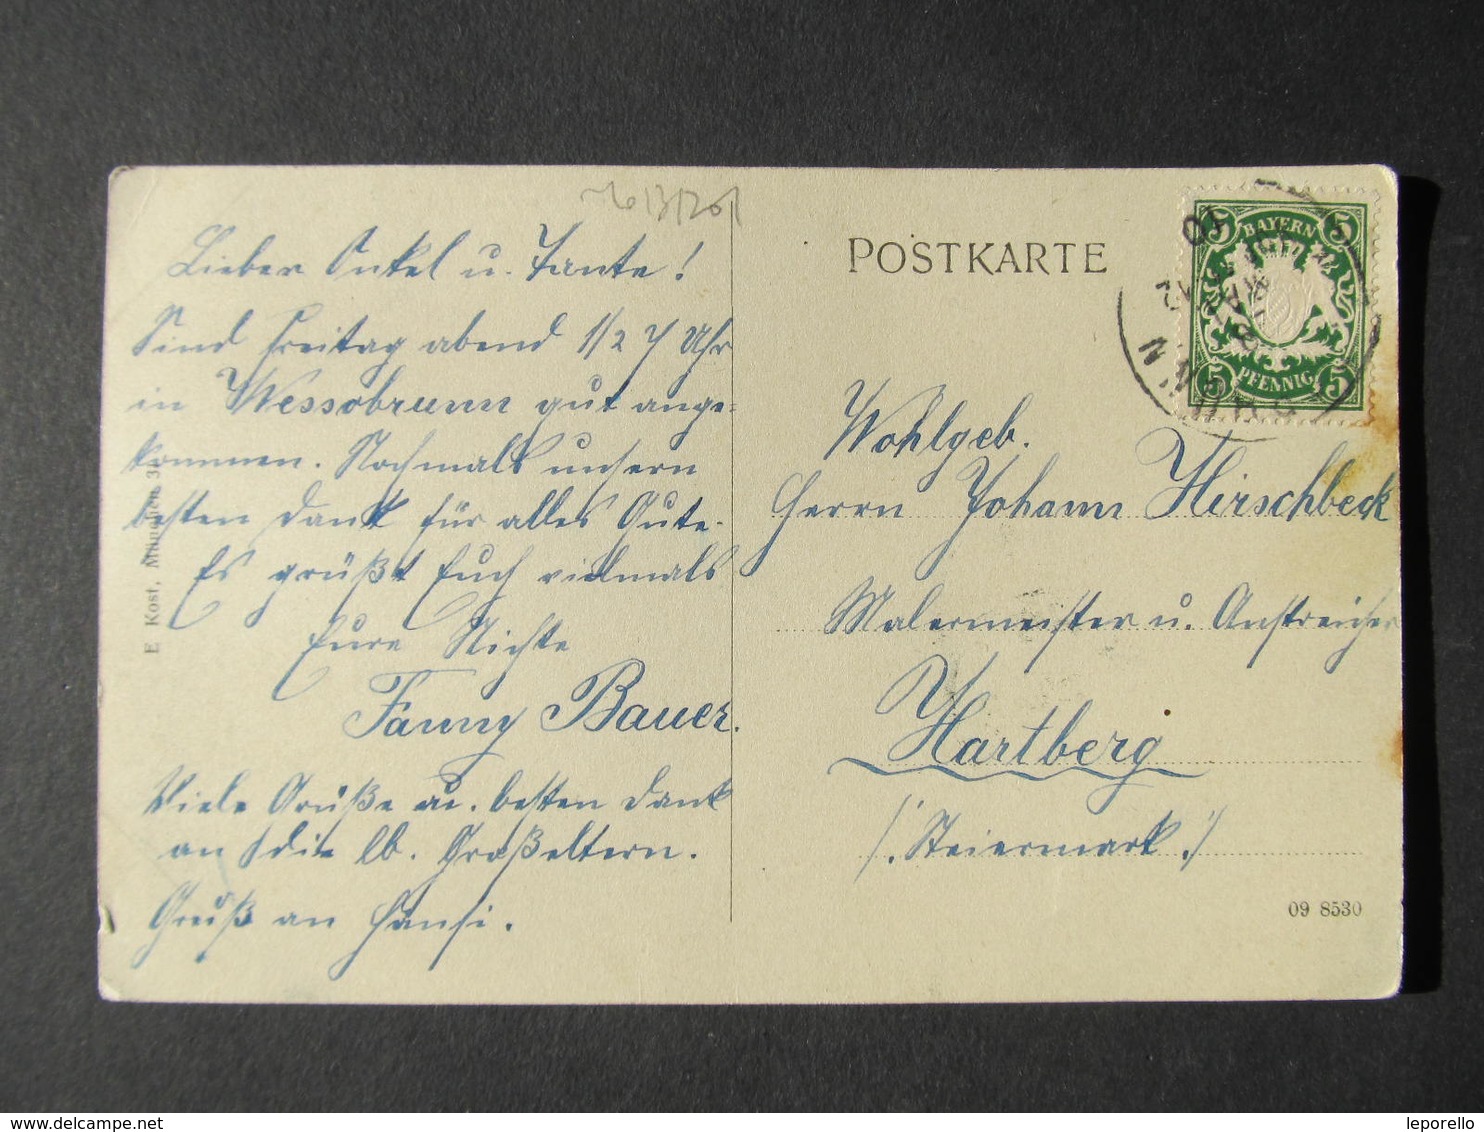 Lieber Onkel u. Tante!
Sind Freitag abend 1/2 7 Uhr
in Wessobrunn gut ange=
kommen. Nochmals unsern
besten Dank für alles Gute.
Es grüßt Euch vielmals
Eure Nichte
Fanny Bauer.
Viele Grüße u. besten Dank
an die lb. Großeltern.
Gruß an Hansi.
E Kost, München
POSTKARTE
BAYERN
5 5
5 PFENNIG 5
Wohlgeb.
Herrn Johann Hirschbeck
Malermeister u. Anstreicher
Hartberg
/: Steiermark :/
09 8530
leporello